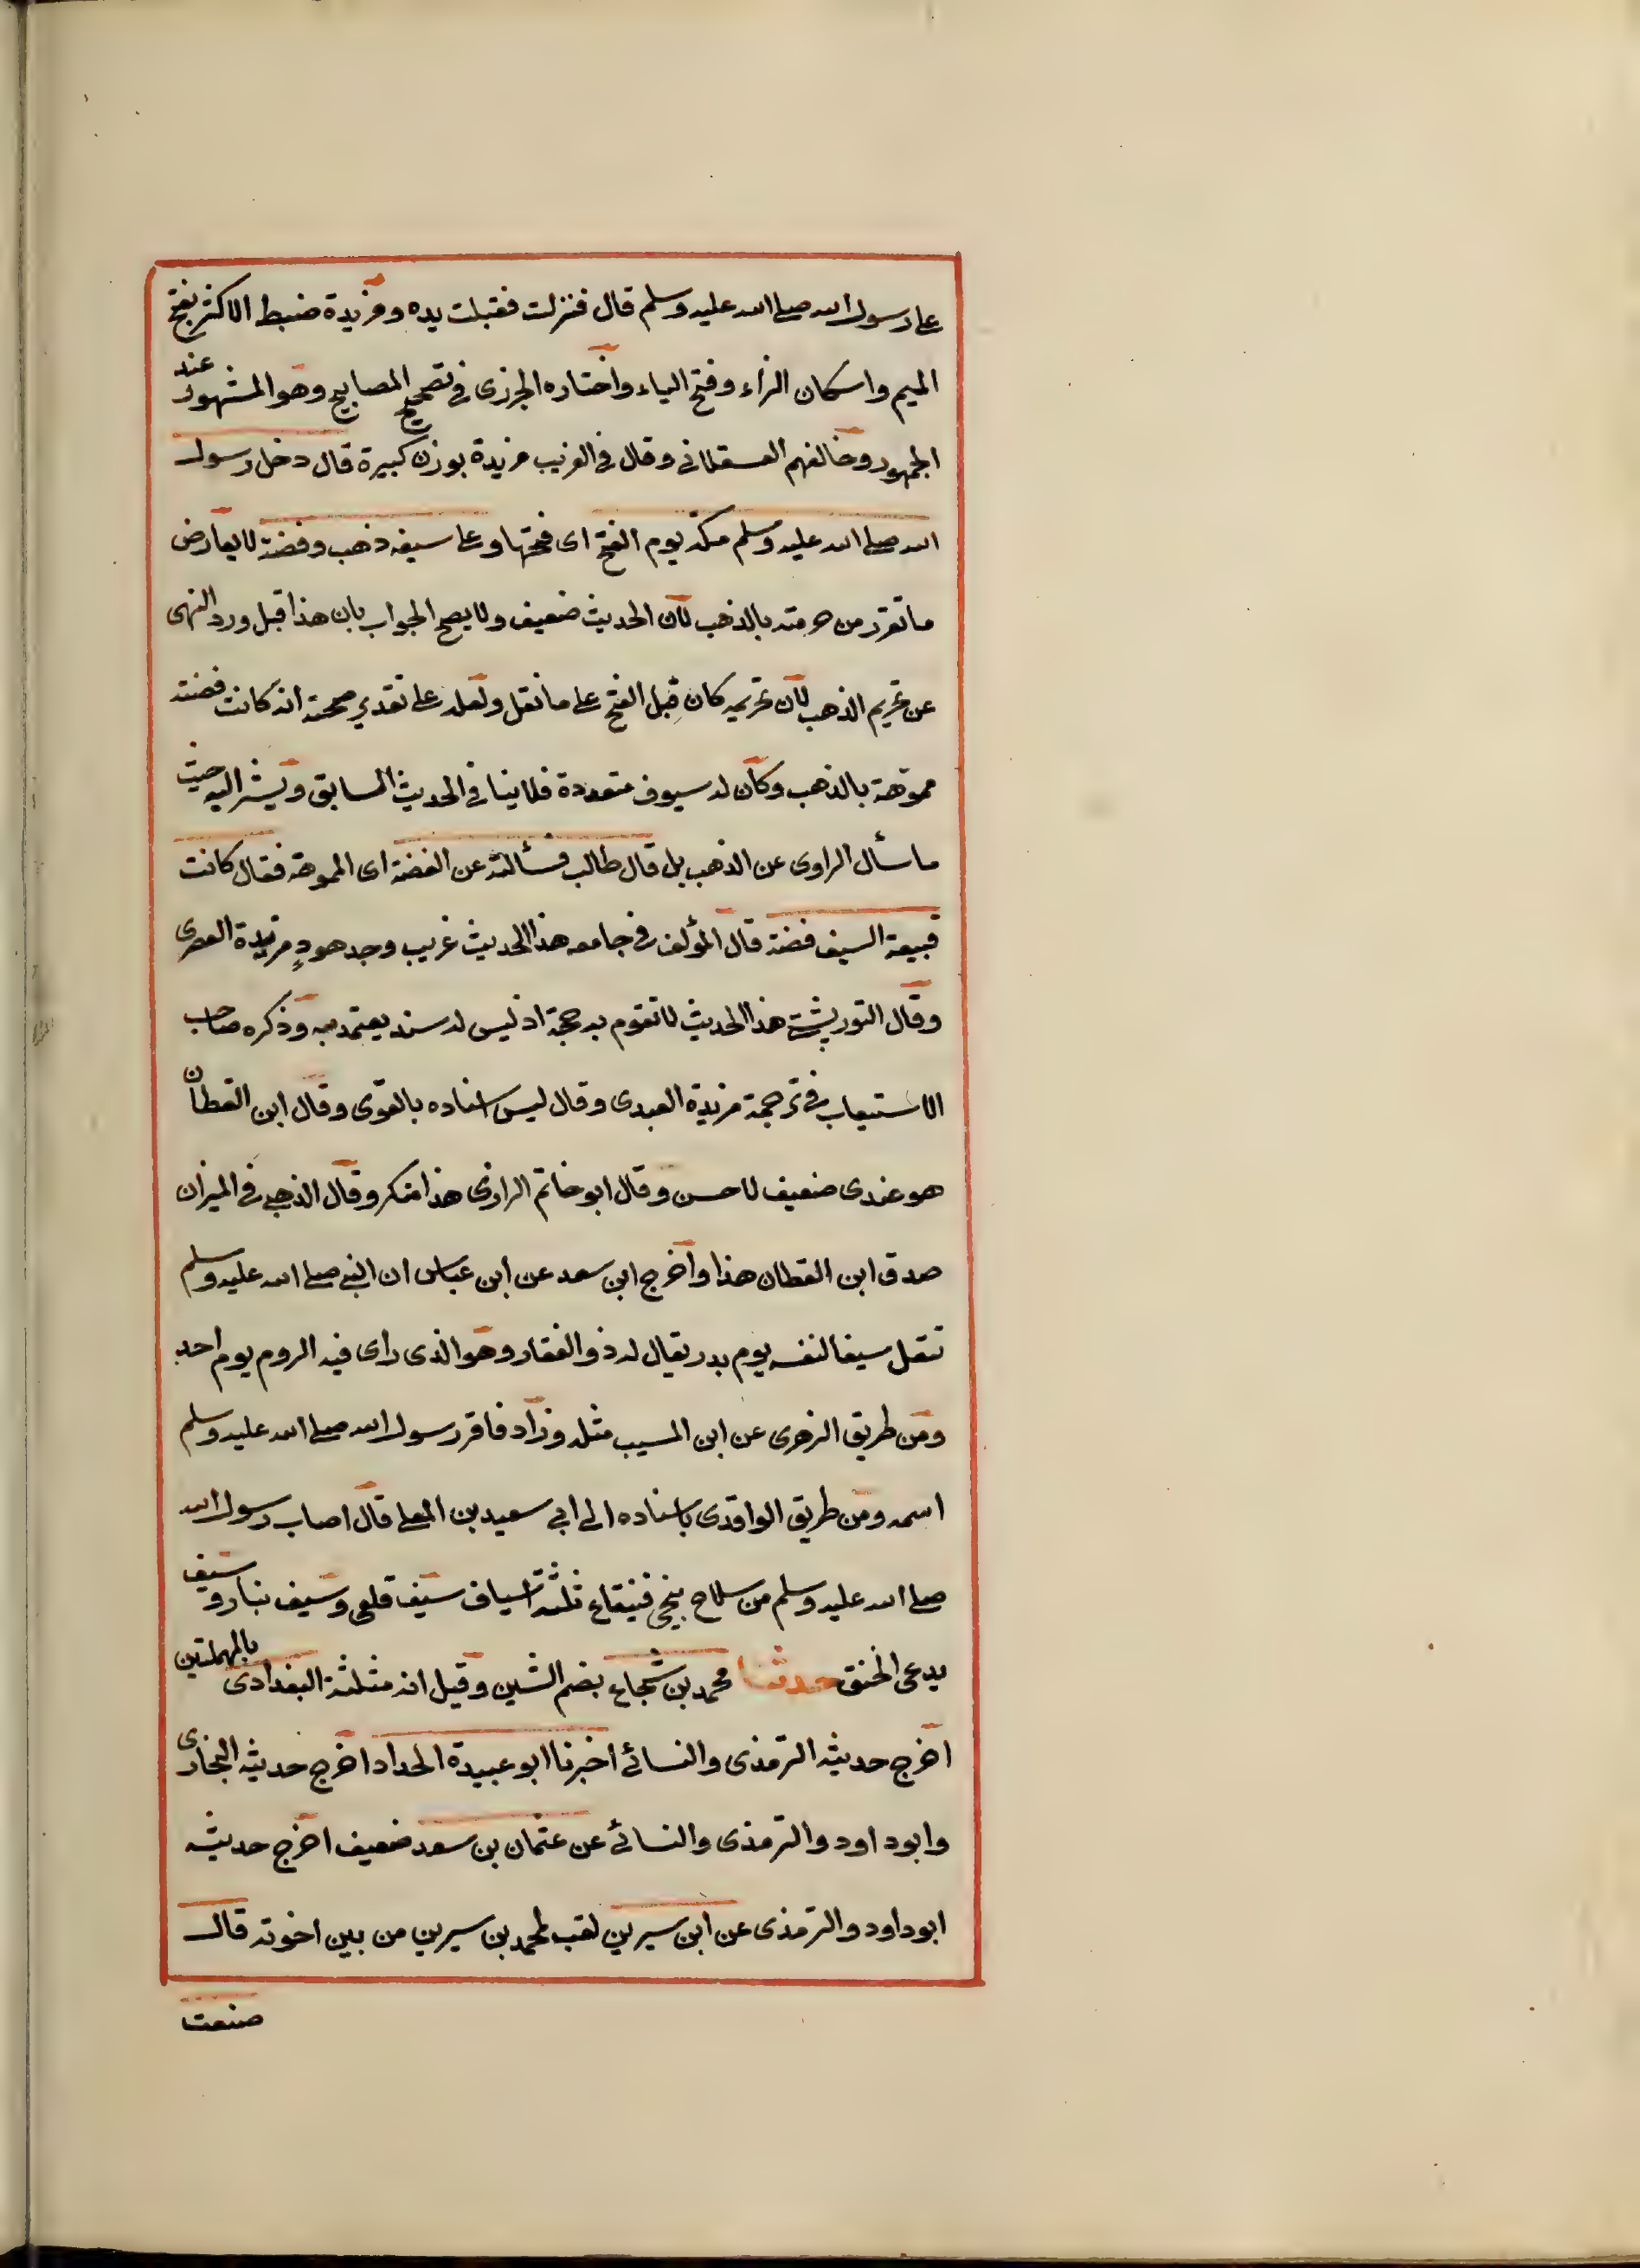 على رسول الله صلى الله عليه وسلم قال فنزلت فقبلت يده ومزيدة ضبط الاكثر بفتح
الميم واسكان الزاء وفتح الياء واختاره الجزرى فى تصحيح المصابيح وهو المشهور عند
الجمهور وخالفهم العسقلانى وقال فى القريب مزيدة بوزن كبيرة قال دخل رسول
الله صلى الله عليه وسلم مكة يوم الفتح اى فتحها وعلى سيفه ذهب وفضة لا يعارض
ما تقرر من حرمته بالذهب لان الحديث ضعيف ولا يصح الجواب بان هذا قبل ورد النهى
عن تحريم الذهب لان تحريمه كان قبل الفتح على ما نقل ولعله على تقدير صحته انه كانت فضته
مموهة بالذهب وكان له سيوف متعددة فلا ينافى الحديث السابق ويشير اليه حيث
ما سأل الراوى عن الذهب بل قال طالب فسألته عن الفضة اى المموهة فقال كانت
قبيعة السيف فضة قال المؤلف فى جامعه هذا الحديث غريب وجد هود مزيدة العصرى
وقال التوربشتى هذا الحديث لا تقوم به حجة اذ ليس له سند يعتمد به وذكره صاحب
الاستيعاب فى ترجمة مزيدة العبدى وقال ليس اسناده بالقوى وقال ابن القطان
هو عندى ضعيف لا حسن وقال ابو خاتم الرازى هذا منكر وقال الذهبى فى الميزان
صدق ابن القطان هذا واخرج ابن سعد عن ابن عباس ان النبى صلى الله عليه وسلم
تنقل سيفا لنفسه يوم بدر يقال له ذو الفقار وهو الذى راى فيه الروم يوم احد
ومن طريق الزهرى عن ابن المسيب مثله وزاد فاقر رسول الله صلى الله عليه وسلم
اسمه ومن طريق الواقدى باسناده الى ابى سعيد بن المعلى قال اصاب رسول الله
صلى الله عليه وسلم من سلاح بنى قينقاع ثلثة اسياف سيف قلعى وسيف بتار وسيف
يدعى الحنق حدثنا محمد بن شجاع بضم الشين وقيل انه مثلثة البغدادى بالمهملتين
اخرج حديثه الترمذى والنسائى اخبرنا ابو عبيدة الحداد اخرج حديثه البخارى
وابو داود والترمذى والنسائى عن عثمان بن سعد ضعيف اخرج حديثه
ابو داود والترمذى عن ابن سيرين لقب لمحمد بن سيرين من بين اخوته قال
صنعت